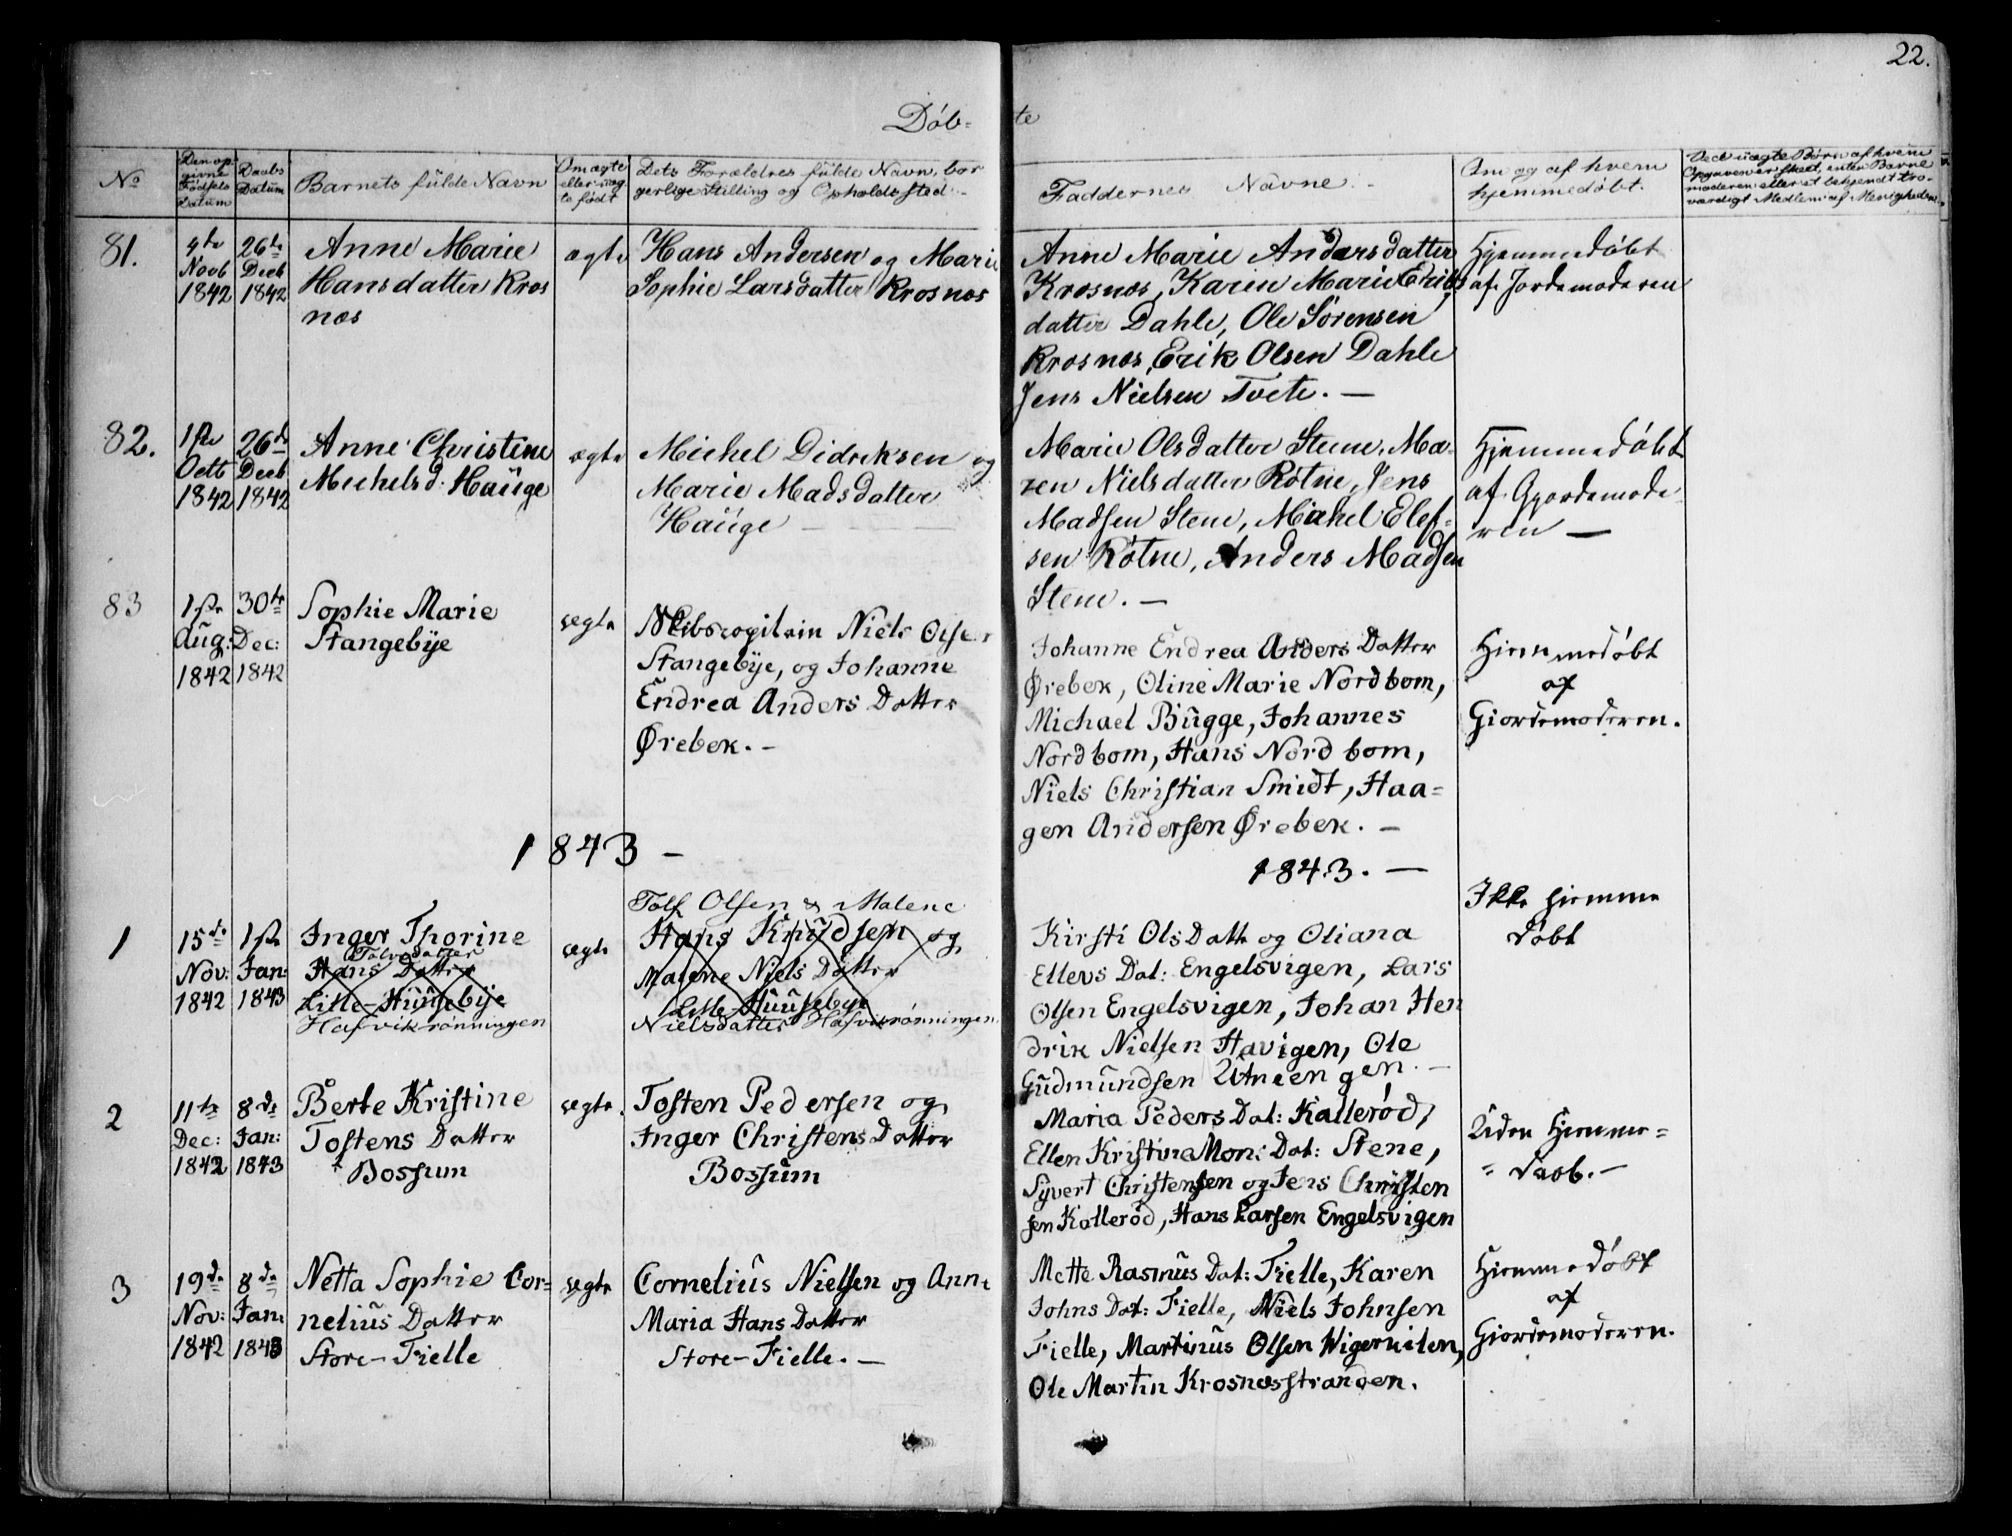 22.
Döb-
te
No
Den op-
givne
Fødsels
Datum
Daabs
Datum
Barnets fulde Navn
Om ægte
eller uæg
te født
Dets Forældres fulde Navn, bor
gerlige Stilling og Opholdssted
Faddernes Navne.
Om og af hvem
hjemmedøbt.
Ved uægte Børn af hvem
Opgaven er skeet, enten Barne
moderen eller et bekjendt tro-
værdigt Medlem af Menigheden
81.
4de
Novb
1842
26de
Decb
1842
Anne Marie
Hansdatter Kros
næs
ægte
Hans Andersen og Marie
Sophie Larsdatter Krosnæs
Anne Marie Andersdatter
Krosnæs, Karen Marie Eriks
datter Dahle, Ole Sørensen
Krosnæs, Erik Olsen Dahle
Jens Nielsen Tvete. —
Hjemmedøbt
af Jordemoderen
82.
1ste
Octb
1842
26de
Decb
1842
Anne Christine
Michelsd. Hauge
ægte
Michel Didreksen og
Marie Madsdatter
Hauge
Marie Olsdatter Stene, Ma-
ren Nielsdatter Rötne, Jens
Madsen Stene, Mickel Elef-
sen Rötne, Anders Madsen
Stene. —
Hjemmedøbt
af Gjordemode
ren —
83
1ste
Aug:
1842
30te
Dec:
1842
Sophie Marie
Stangebye
ægte
Skibscapitain Niels Olsen
Stangebye, og Johanne
Endrea Anders Datter
Ørebek. -
Johanne Endrea Anders Datter
Ørebek, Oline Marie Nordbom,
Michael Bugge, Johannes
Nordbom, Hans Nordbom,
Niels Christian Smidt, Haa-
gen Andersen Ørebek. —
Hiemmedøbt
af
Giordemoderen.
1843 —
1843. —
1
15de
Nov:
1842
1ste
Jan:
1843
Inger Thorine
Tolvsdatter
Hans Datter
Lille-Huusebye
Hafvikrønningen
ægte
Tolf Olsen & Malene
Hans Knudsen og
Malene Niels Datter
Lille Huusebye
Nielsdatter Hafvikrønningen
Kirsti Ols Datt og Oliana
Ellevs Dat: Engelsvigen, Lars
Olsen Engelsvigen, Johan Hen
drik Nielsen Havigen, Ole
Gudmundsen
Ikke hiemme
døbt
2
11te
Dec:
1842
8de
Jan:
1843
Berte Kristine
Tostens Datter
Bossum
ægte.
Tosten Pedersen og
Inger Christens Datter
Bossum
Maria Peders Dat: Kallerød,
Ellen Kristina Mons Dat: Stene,
Syvert Christensen og Jens Christen
sen Kallerød, Hans Larsen Engelsvigen
Uden Hiemme=
= daab. —
3
19de
Nov:
1842
8de
Jan:
1843
Netta Sophie Cor-
nelius Datter
Store-Fielle
ægte
Cornelius Nielsen og Anne
Maria Hans Datter
Store-Fielle. —
Mette Rasmus Dat: Fielle, Karen
Johns Dat: Fielle, Niels Johnsen
Fielle, Martinus Olsen Wigernilen,
Ole Martin Krosnæsstranden.
Hiemmedøbt
af
Giordemoderen.